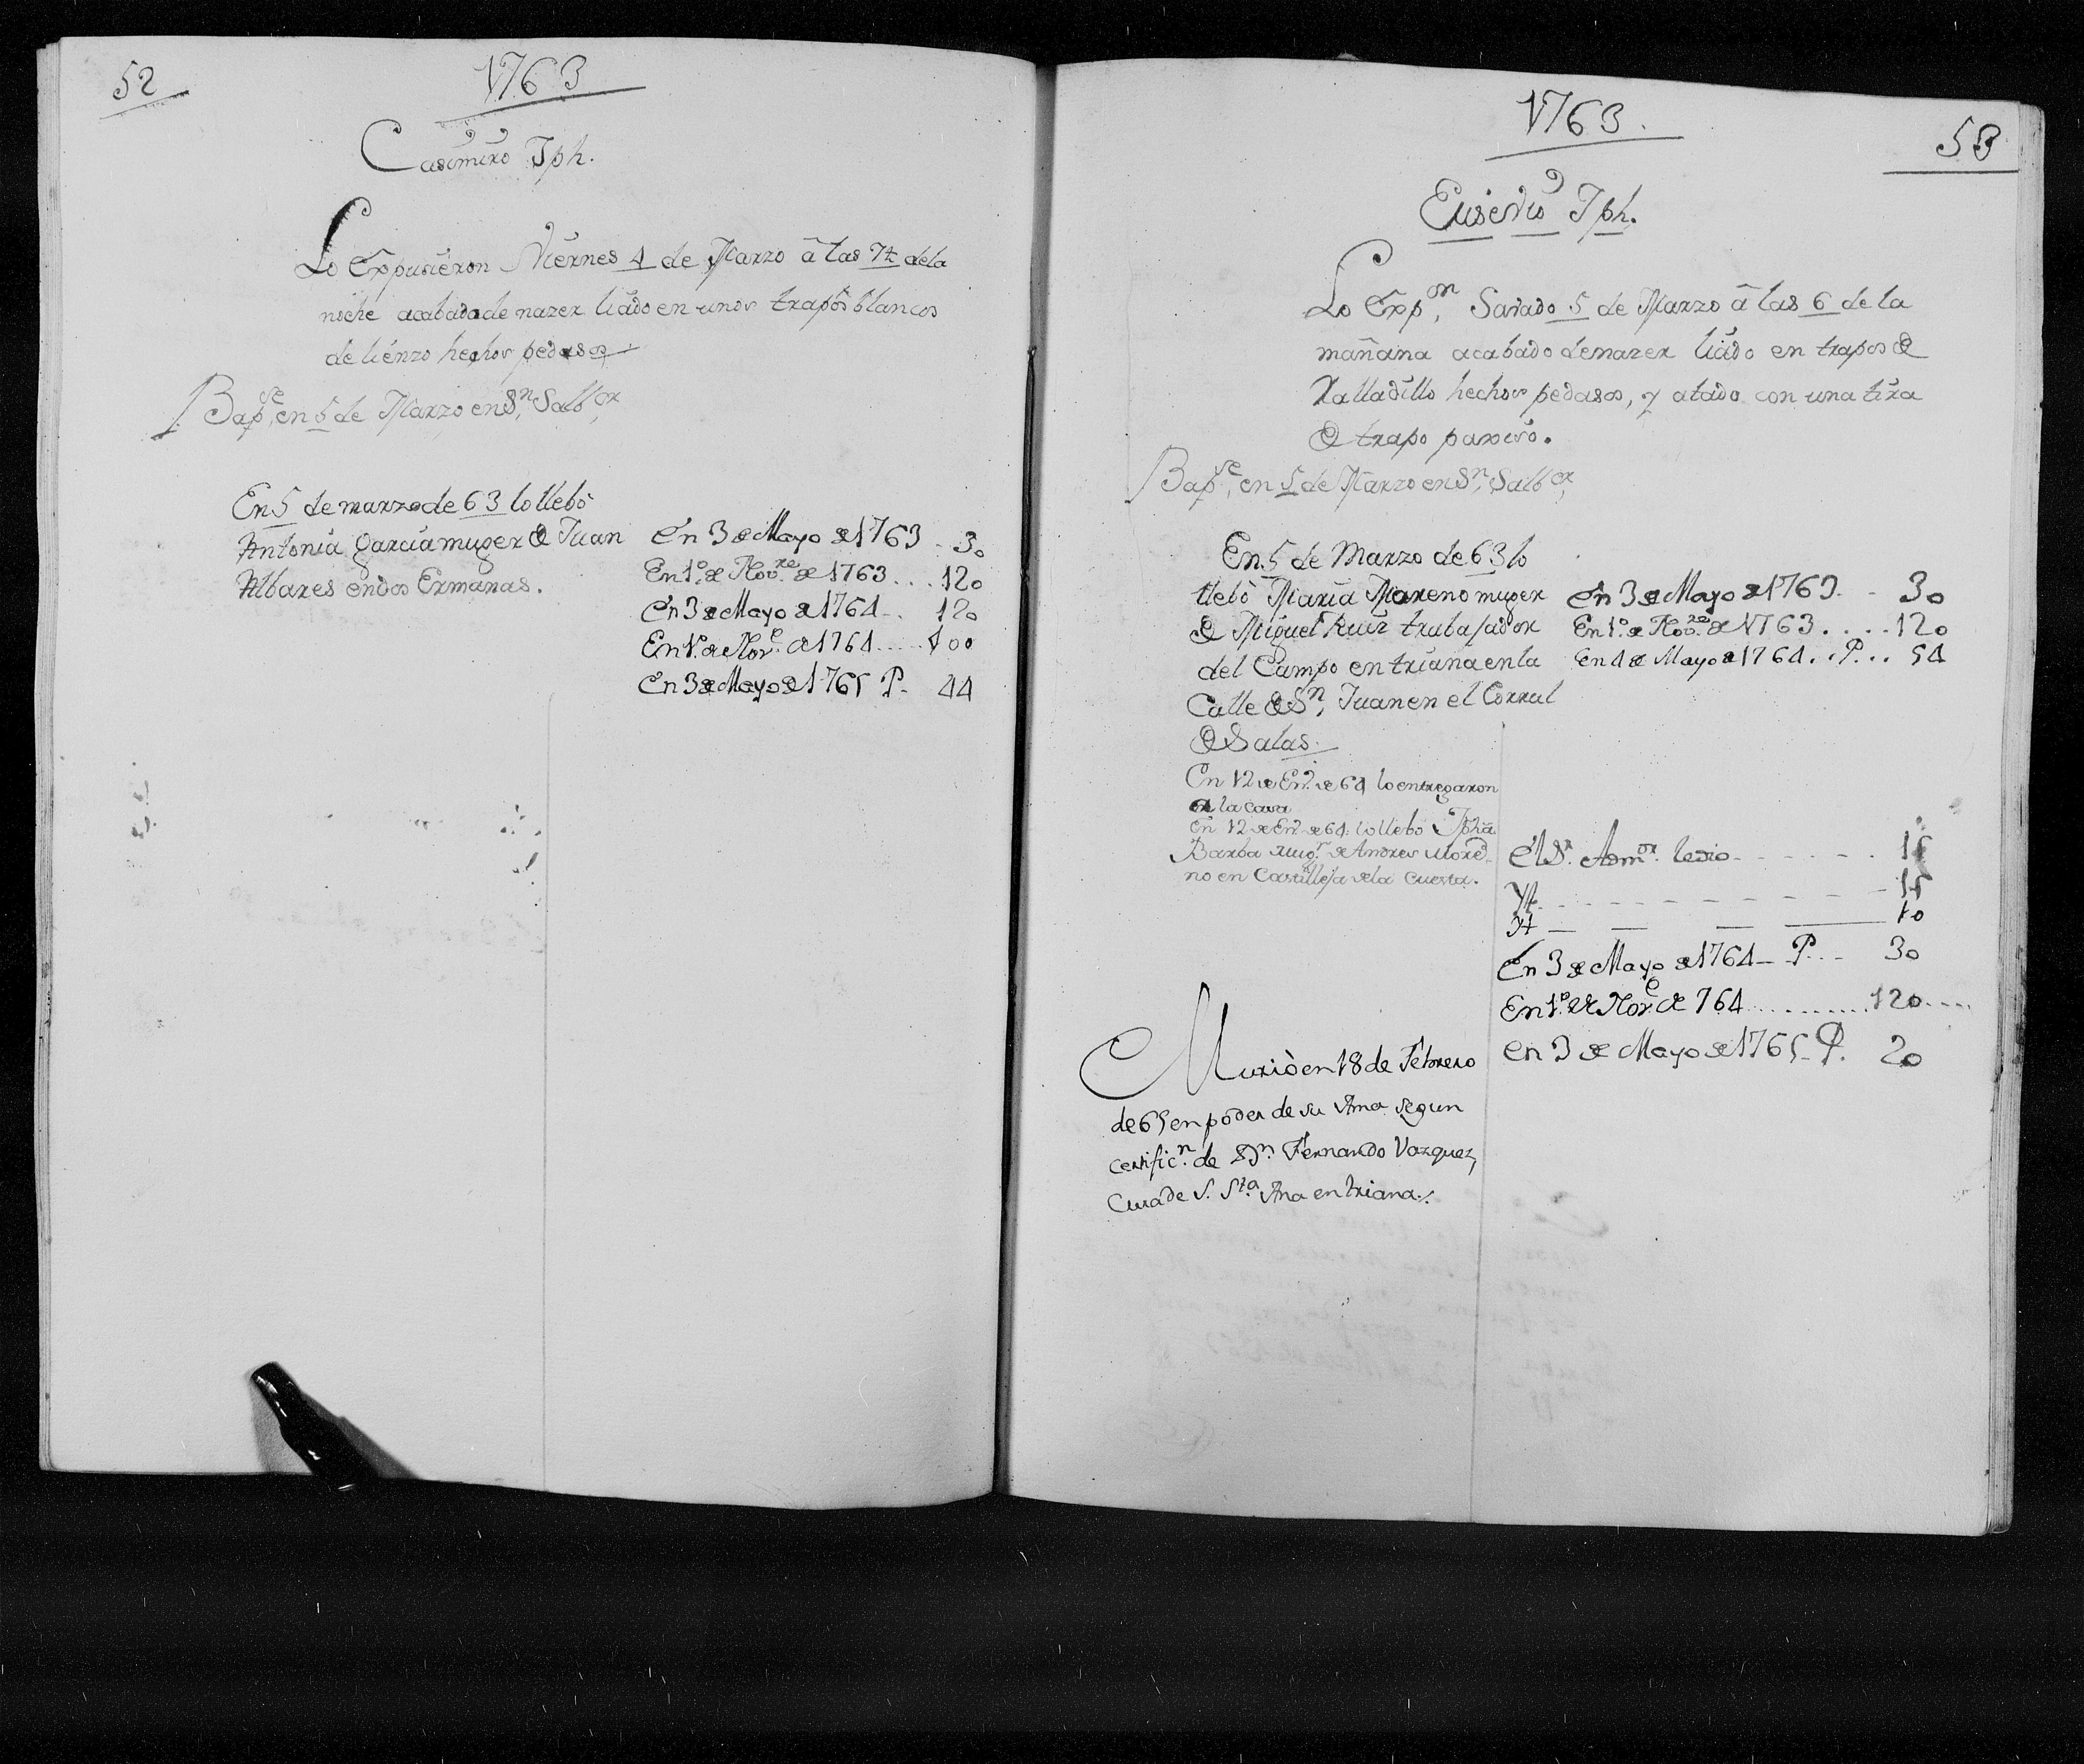 52
1763
Casimiro Jph.
Lo Exppusieron Viernes 4 de Marzo â las 7½ dela
noche acabado de nazer liado en unos trapos blancos
de lienzo hechos pedasos
Bapse, en 5 de Marzo en Sn, Salbor,
En 5 de marzo de 63 lo llebò
Antonia Garcia muger de Juan
Albares en dos Ermanas.
En 3 de Mayo de 1763 - 30
En 1º. de Novre. de 1763 . . . 120
En 3 de Mayo de 1764 - . 120
En 1º. de Nove. de 1764 ..... 100
En 3 de Mayo de 1765 P. 44
1763.
53
Eusevio Jph.
Lo Exppon, Savado 5 de Marzo â las 6 de la
mañana acabado de nazer liado en trapos de
Valladillo hechos pedasos, y atado con una tira
de trapo
Bapse, en 5 de Marzo en Sn, Salbor,
En 5 de Marzo de 63 lo
llebò Maria Moreno muger
de Miguel Ruiz trabajador
del Campo en triana en la
Calle de Sn, Juan en el Corral
de Salas.
En 3 de Mayo de 1763. - 30
En 1º. de Novre. de 1763 . . . . 120
En 4 de Mayo de 1764 . . P. . . 54
En 12 de Enº. de 64 lo entregaron
en la casa
En 12 de Enº de 64. lo llebo Jpha
Barba mugr. de Andres More-
no en Castilleja de la Cuesta.
El Sr. Admor. ledio - - - - - - 15
Yt. - - - - - - - - - - - 15
Yt — — — — 10
En 3 de Mayo de 1764 - P. . - 30
En 1º. de Nove. de 764 .......... 120 ....
En 3 de Mayo de 1765 - P. 20
Muriò en 18 de Febrero
de 65 en poder de su Ama segun
certificn. de Dn. Fernando Vazquez,
Cura de S. Sta. Ana en triana.